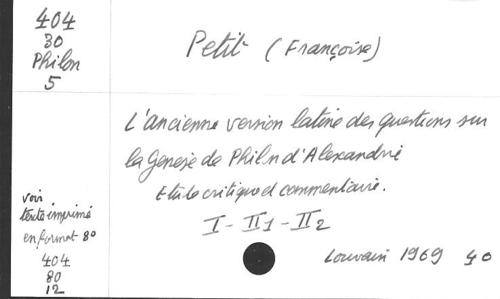 404
30
Philon
5
Petit (Françoise)
L'ancienne version latine des questions sur
la Genèse de Philon d'Alexandrie
Etude critique et commentaire.
I - II1 - II2
Louvain 1969 40
voir
texte imprimé
en format 80
404
80
12